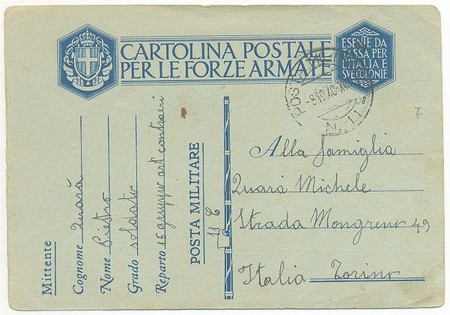 CARTOLINA POSTALE
PER LE FORZE ARMATE
ESENTE DA
TASSA PER
L'ITALIA E
SVIZZERA
N. 11
7
Mittente
Cognome Quarà
Nome Pietro
Grado soldato
Reparto 15 gruppo art contraerei
POSTA MILITARE
11 E
Alla famiglia
Quarà Michele
Strada Mongreno 49
Italia Torino